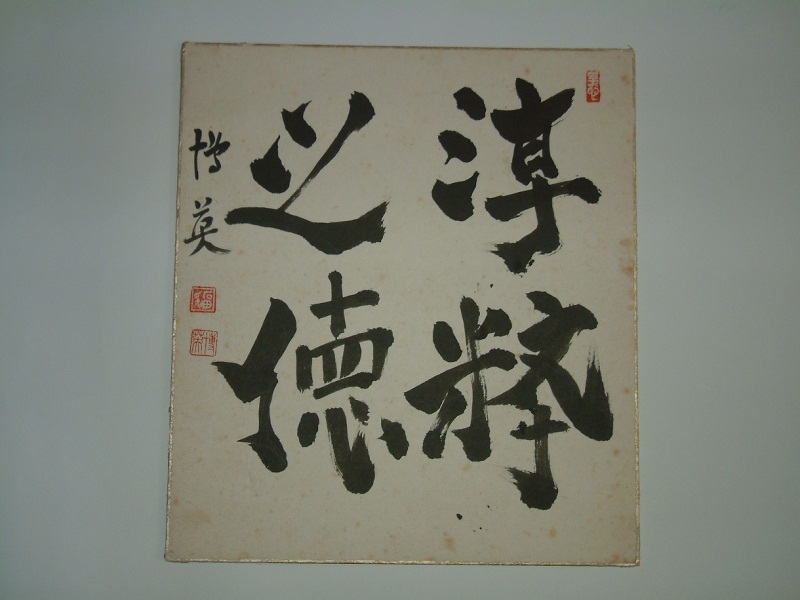 淳粹
之德
博英